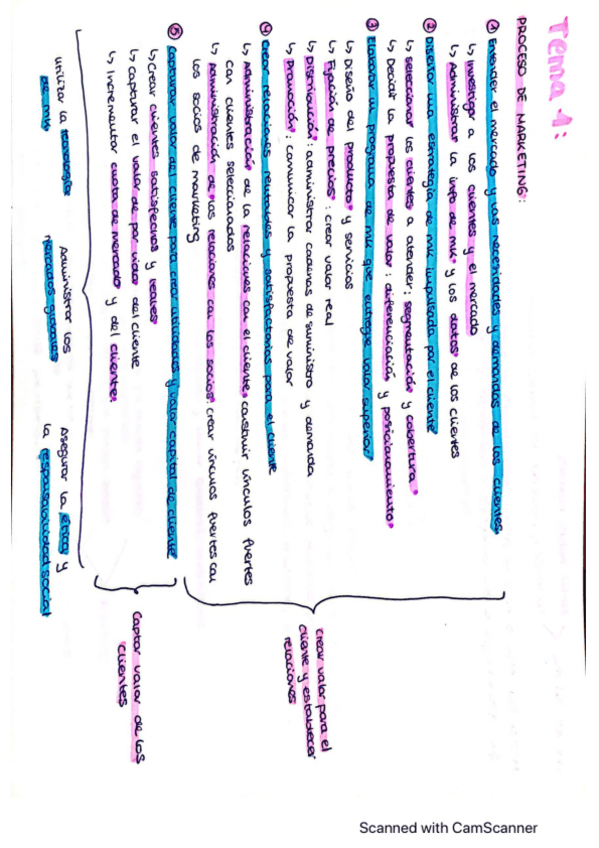 Tema 1:
PROCESO DE MARKETING:
① Entender el mercado y las necesidades y demandas de los clientes
↳ Investigar a los clientes y el mercado
↳ Administrar la info de mk y los datos de los clientes
② Diseñar una estrategia de mk impulsada por el cliente
↳ Seleccionar los clientes a atender: segmentación y cobertura.
↳ Decidir la propuesta de valor: diferenciación y posicionamiento.
③ Elaborar un programa de mk que entregue valor superior
↳ Diseño del producto y servicios
↳ Fijación de precios: crear valor real
↳ Distribución: administrar cadenas de suministro y demanda
↳ Promoción: comunicar la propuesta de valor
④ Crear relaciones rentables y satisfactorias para el cliente
↳ Administración de la relaciones con el cliente: construir vínculos fuertes
con clientes seleccionados
↳ Administración de las relaciones con los socios: crear vínculos fuertes con
los socios de marketing
Crear valor para el
cliente y establecer
relaciones
⑤ Capturar valor del cliente para crear utilidades y valor capital de cliente
↳ Crear clientes satisfechos y leales
↳ Capturar el valor de por vida del cliente
↳ Incrementar cuota de mercado y del cliente.
Captar valor de los
clientes
Utilizar la tecnología
de mk
Administrar los
mercados globales
Asegurar la ética y
la responsabilidad social
Scanned with CamScanner